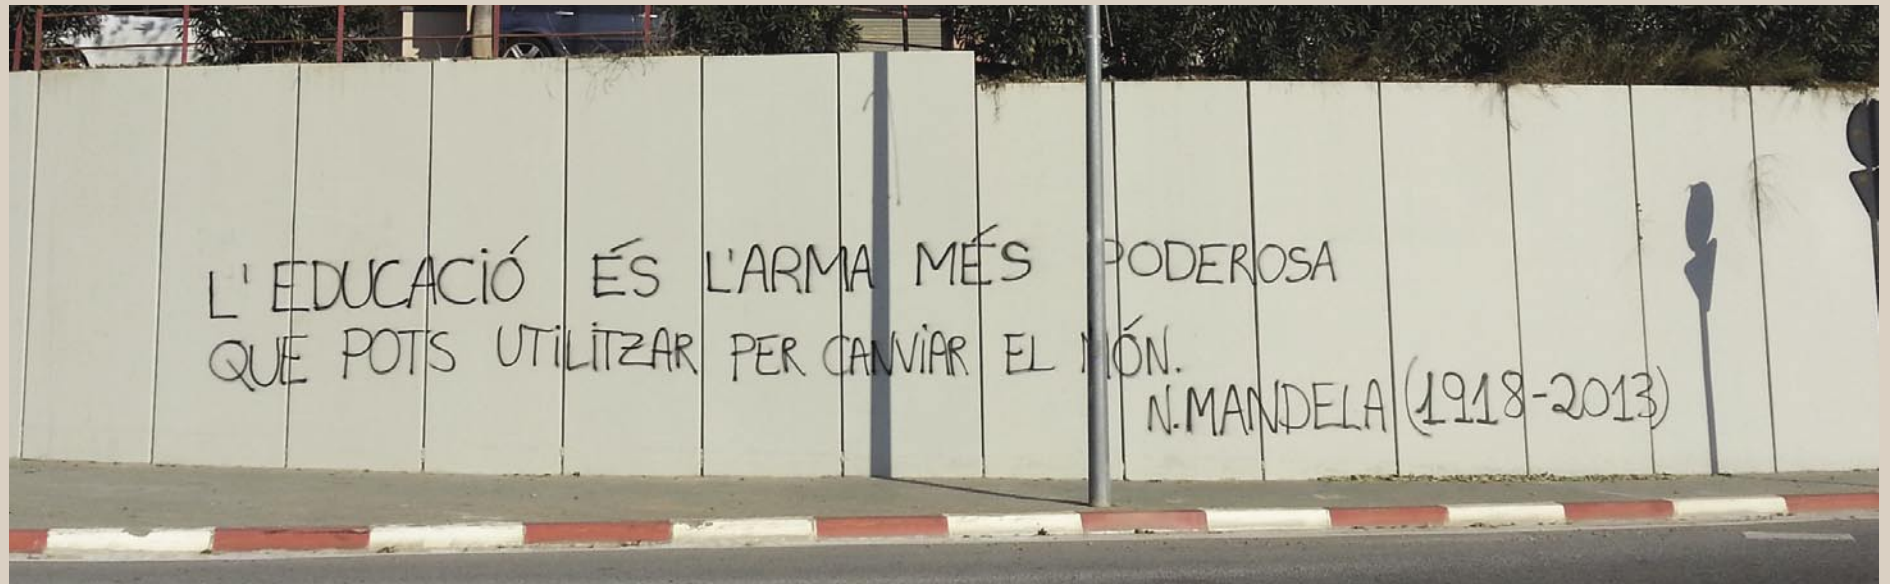 L'EDUCACIÓ ÉS L'ARMA MÉS PODEROSA
QUE POTS UTILITZAR PER CANVIAR EL MÓN.
N.MANDELA (1918-2013)